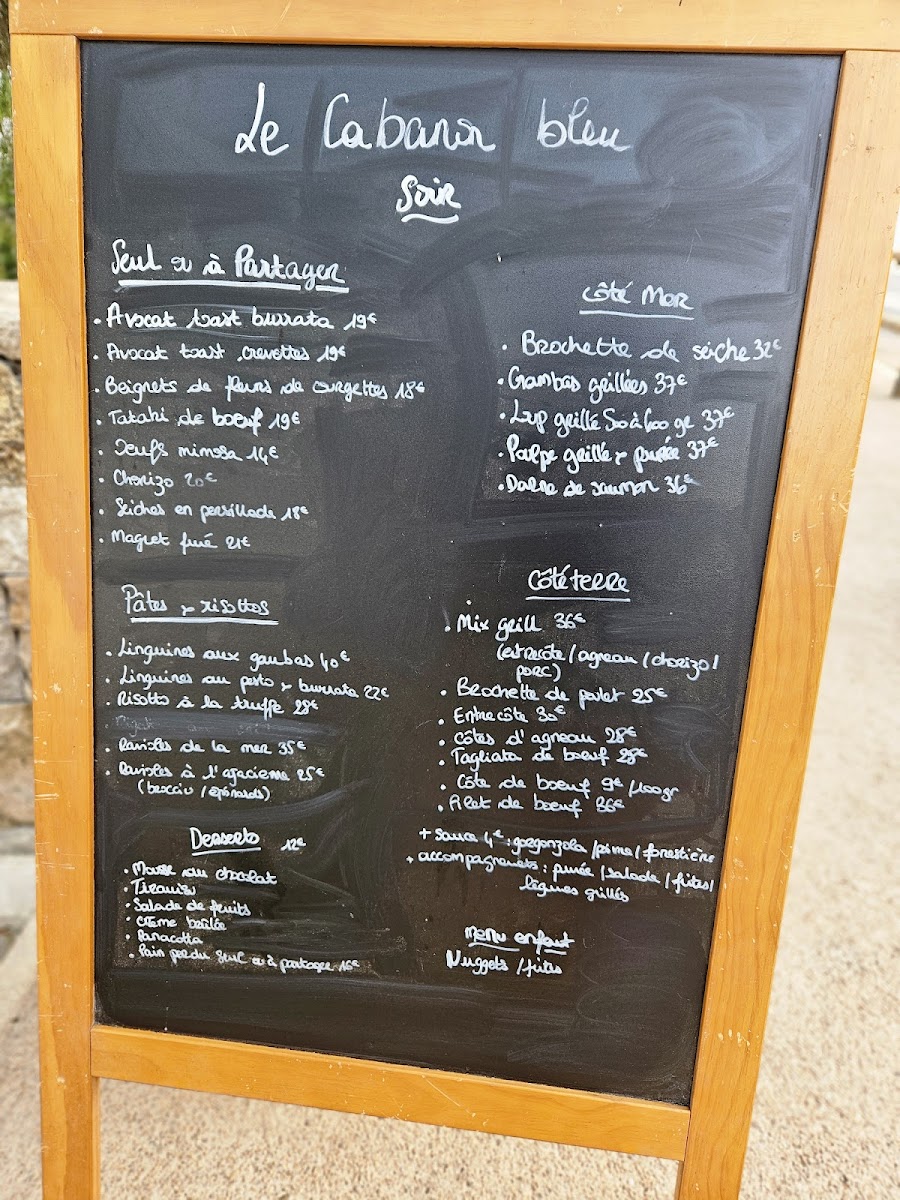 Le Cabanon bleu
Soir
Seul ou à Partager
• Avocat toast burrata 19€
• Avocat toast crevettes 19€
• Beignets de fleurs de courgettes 18€
• Tataki de boeuf 19€
• Oeufs mimosa 14€
• Chorizo 20€
• Seiches en persillade 18€
• Magret fumé 21€
Pâtes & risottos
• Linguines aux gambas 40€
• Linguines au pesto & burrata 22€
• Risotto à la truffe 28€
• Ravioles de la mer 35€
• Ravioles à l'ajacienne 25€
(brocciu / épinards)
Desserts 12€
• Mousse au chocolat
• Tiramisu
• Salade de fruits
• Crème brûlée
• Panacotta
• Pain perdu seul ou à partager 16€
Côté Mer
• Brochette de seiche 32€
• Gambas grillées 37€
• Loup grillé 500 à 600 gr 37€
• Poulpe grillé & purée 37€
• Darne de saumon 36€
Côté terre
• Mix grill 36€
(entrecôte / agneau / chorizo /
porc)
• Brochette de poulet 25€
• Entrecôte 30€
• Côtes d'agneau 28€
• Tagliata de boeuf 28€
• Côte de boeuf 9€ /100gr
• Filet de boeuf 36€
+ sauce 4€ : gorgonzola / / forestière
+ accompagnements : purée / salade / frites /
légumes grillés
Menu enfant
Nuggets / frites